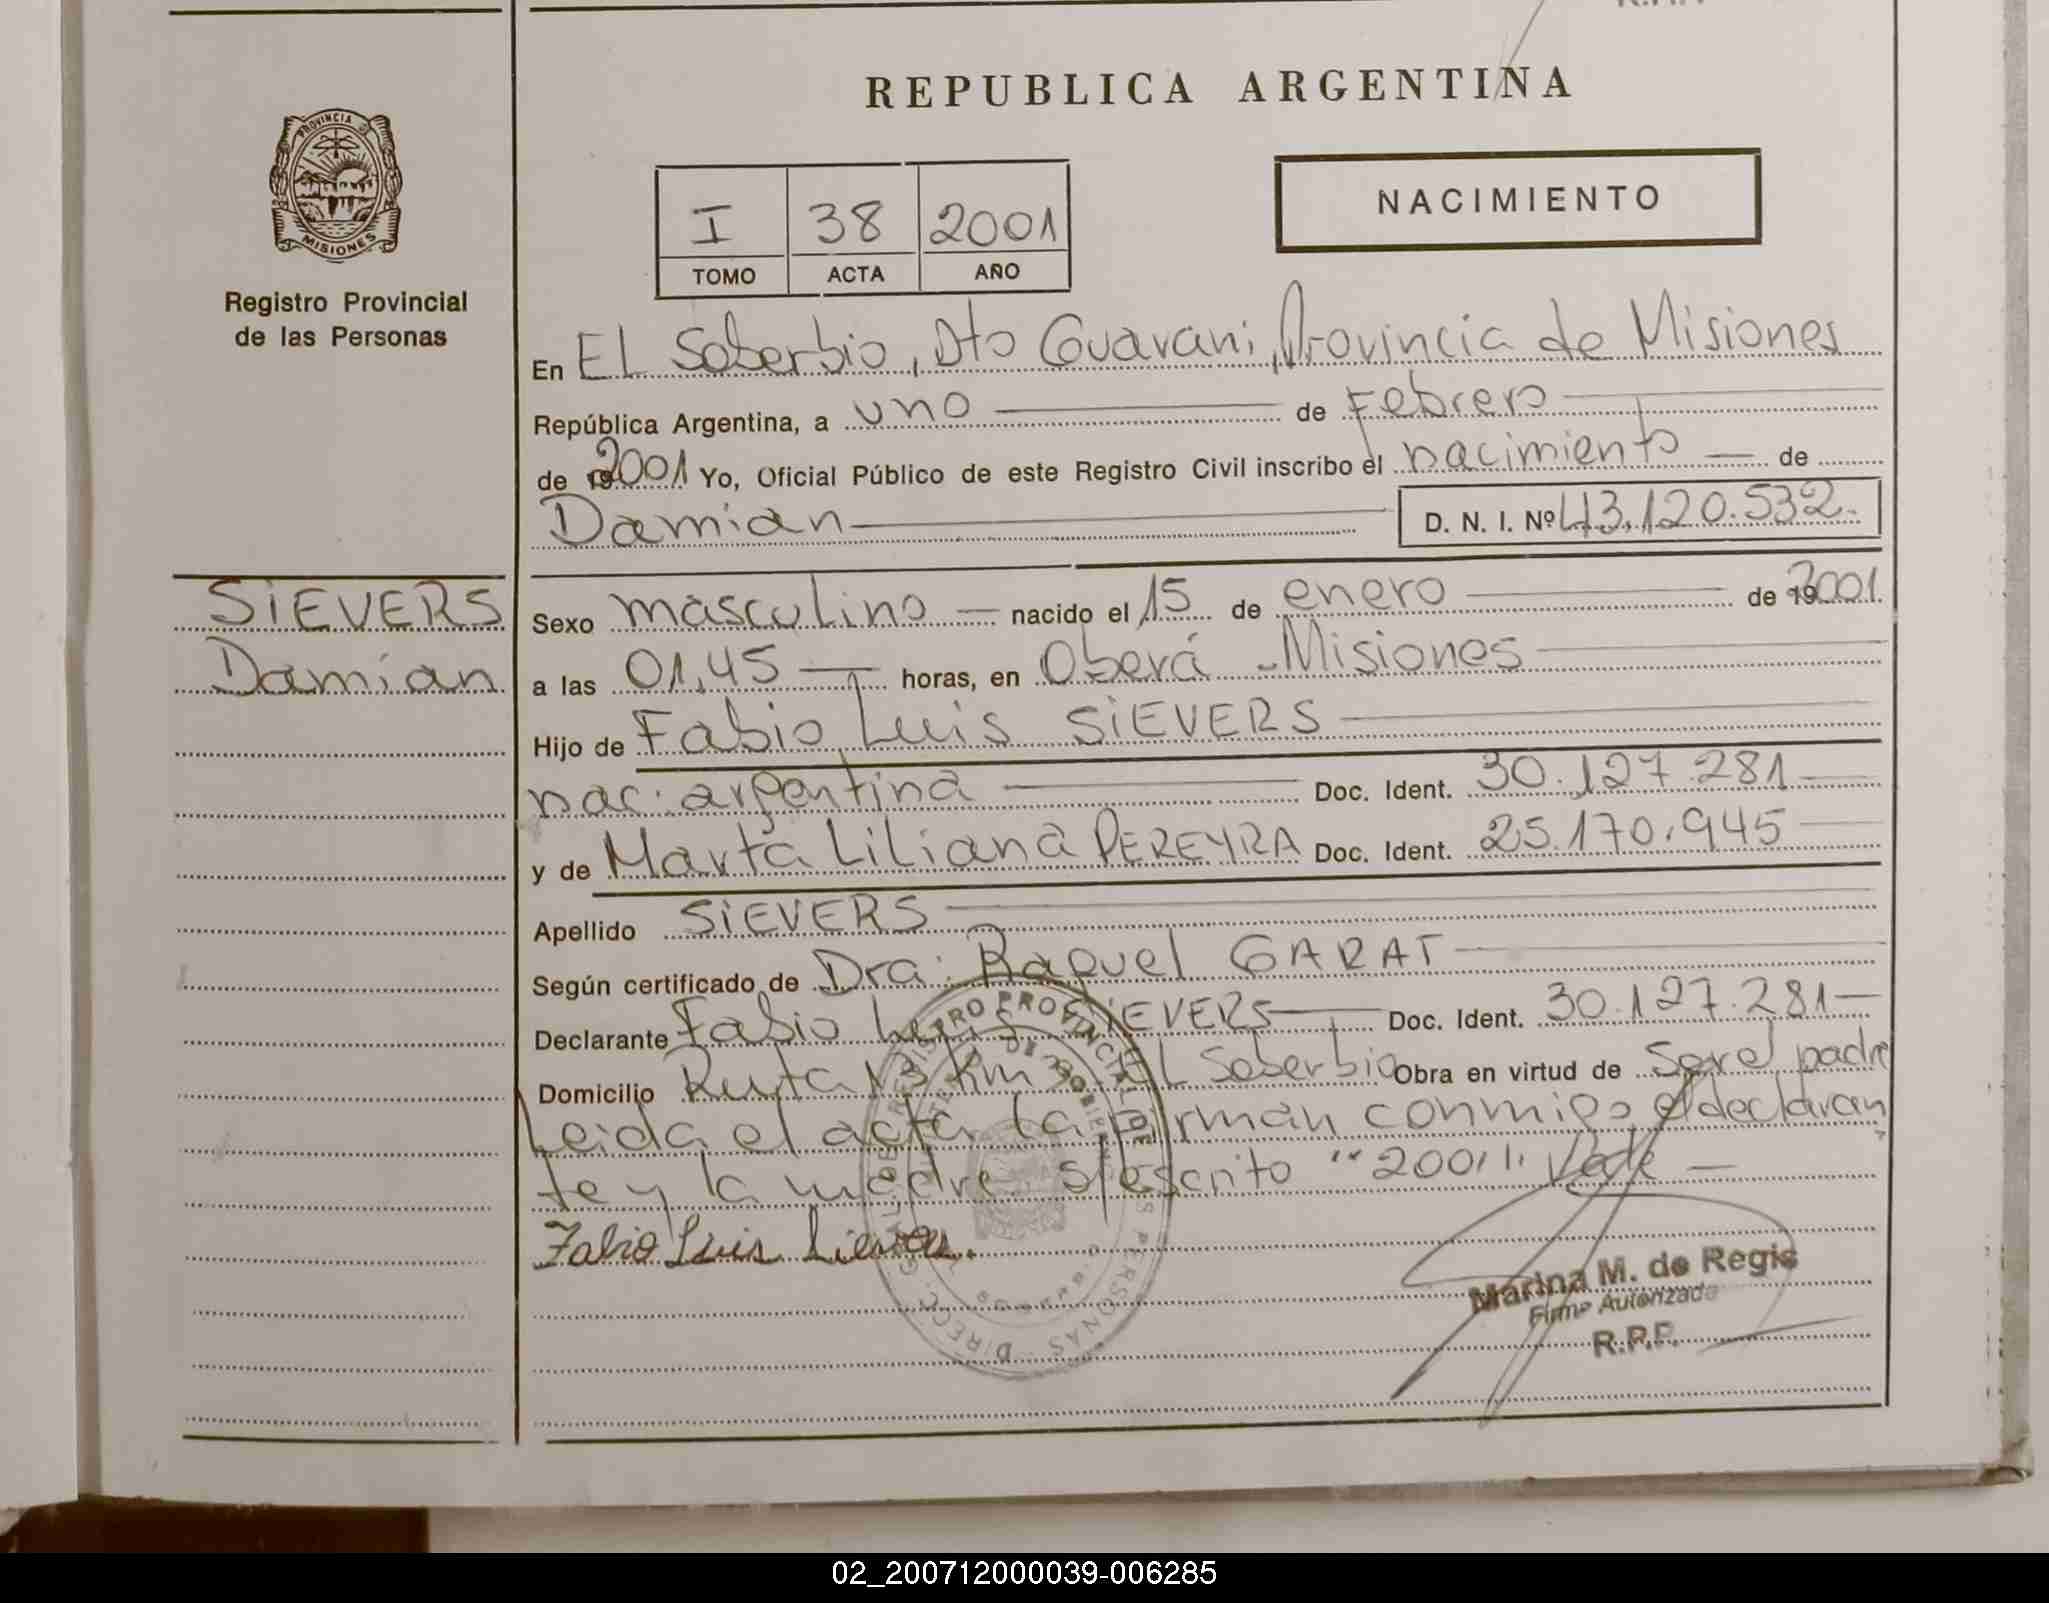 REPUBLICA ARGENTINA
PROVINCIA
MISIONES
Registro Provincial
de las Personas
I 38 2001
TOMO ACTA AÑO
NACIMIENTO
En EL Soberbio, Dto Guarani, Provincia de Misiones
República Argentina, a uno de Febrero
de 2001 Yo, Oficial Público de este Registro Civil inscribo el nacimiento de
Damian D. N. I. Nº 43.120.532.
SIEVERS
Damian
Sexo masculino nacido el 15 de enero de 2001.
a las 01,45 horas, en Oberá - Misiones
Hijo de Fabio Luis SIEVERS
nac: argentina Doc. Ident. 30.127.281
y de Marta Liliana PEREYRA Doc. Ident. 25.170.945
Apellido SIEVERS
Según certificado de Dra: Raquel GARAT
Declarante Fabio Luis SIEVERS Doc. Ident. 30.127.281
Domicilio Ruta 13 Km EL Soberbio Obra en virtud de Ser el padre
Leida el acta la firman conmigo el declaran
te y la madre s/escrito "2001" Vale
Fabio Luis Sievers.
Marina M. de Regis
Firma Autorizada
R.P.P.
02_200712000039-006285